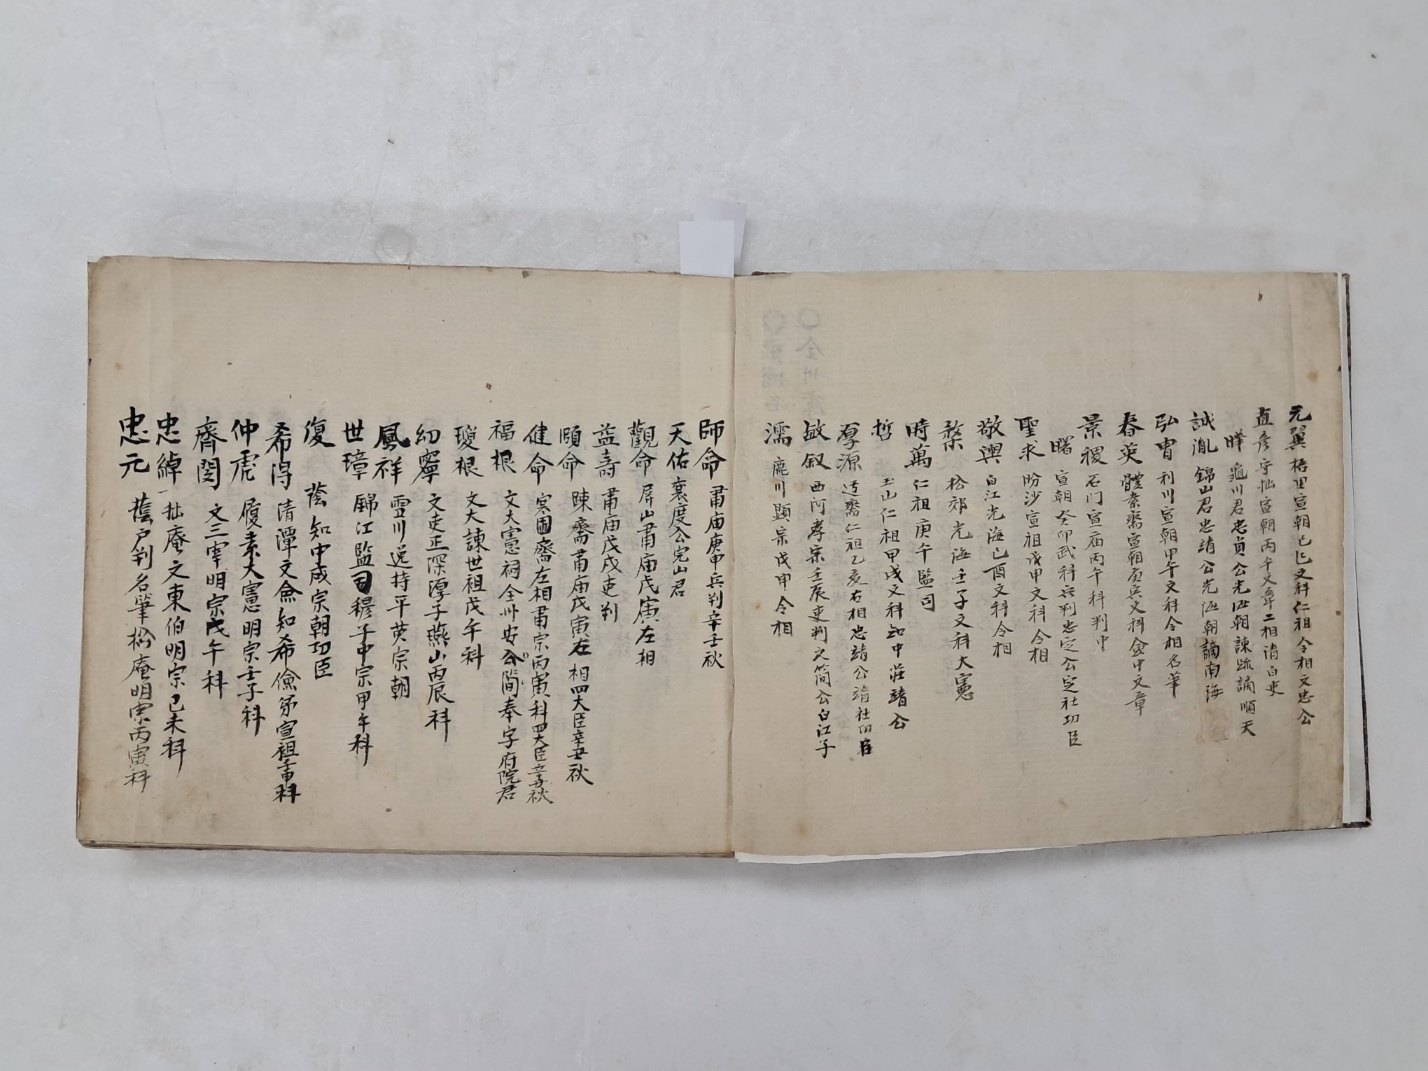 元翼 梧里宣朝己巳文科仁祖令相文忠公
直彦 守拙宣朝丙午文尊二相淸白吏
暐 龜川君忠貞公光海朝諫疏謫順天
誠胤 錦山君忠靖公光海朝謫南海
弘冑 利川宣朝甲午文科令相名筆
春英 體素齋宣朝庚寅文科僉中文章
景稷 石門宣庙丙午科判中
曙 宣朝癸卯武科兵判忠定公定社功臣
聖求 盼沙宣祖戊甲文科令相
敬輿 白江光海己酉文科令相
楘 松郊光海壬子文科大憲
時萬 仁祖庚午監司
哲 玉山仁祖甲戌文科知中莊靖公
厚源 迂齋仁祖乙亥右相忠靖公靖社功臣
敏叙 西河孝宗壬辰吏判文簡公白江子
濡 鹿川顯宗戊申令相
師命 肅庙庚申兵判辛壬秋
天佑 襄度公完山君
觀命 屏山肅庙戊寅左相
益壽 肅庙戊戌吏判
頤命 踈齋肅庙戊寅左相四大臣辛丑秋
健命 寒圃齋左相肅宗丙寅科四大臣辛丑秋
福根 文大憲祠全州安公簡奉字府院君
瓊根 文大諫世祖戊午科
幼寧 文吏正深源子燕山丙辰科
鳳祥 雪川逸持平英宗朝
世璋 錦江監司穆子中宗甲午科
復 蔭知中成宗朝功臣
希得 淸潭文僉知希儉弟宣祖壬申科
仲虎 履素大憲明宗壬子科
齊閔 文三宰明宗戊午科
忠綽 拙庵文東伯明宗己未科
忠元 蔭戶判名筆松庵明宗丙寅科